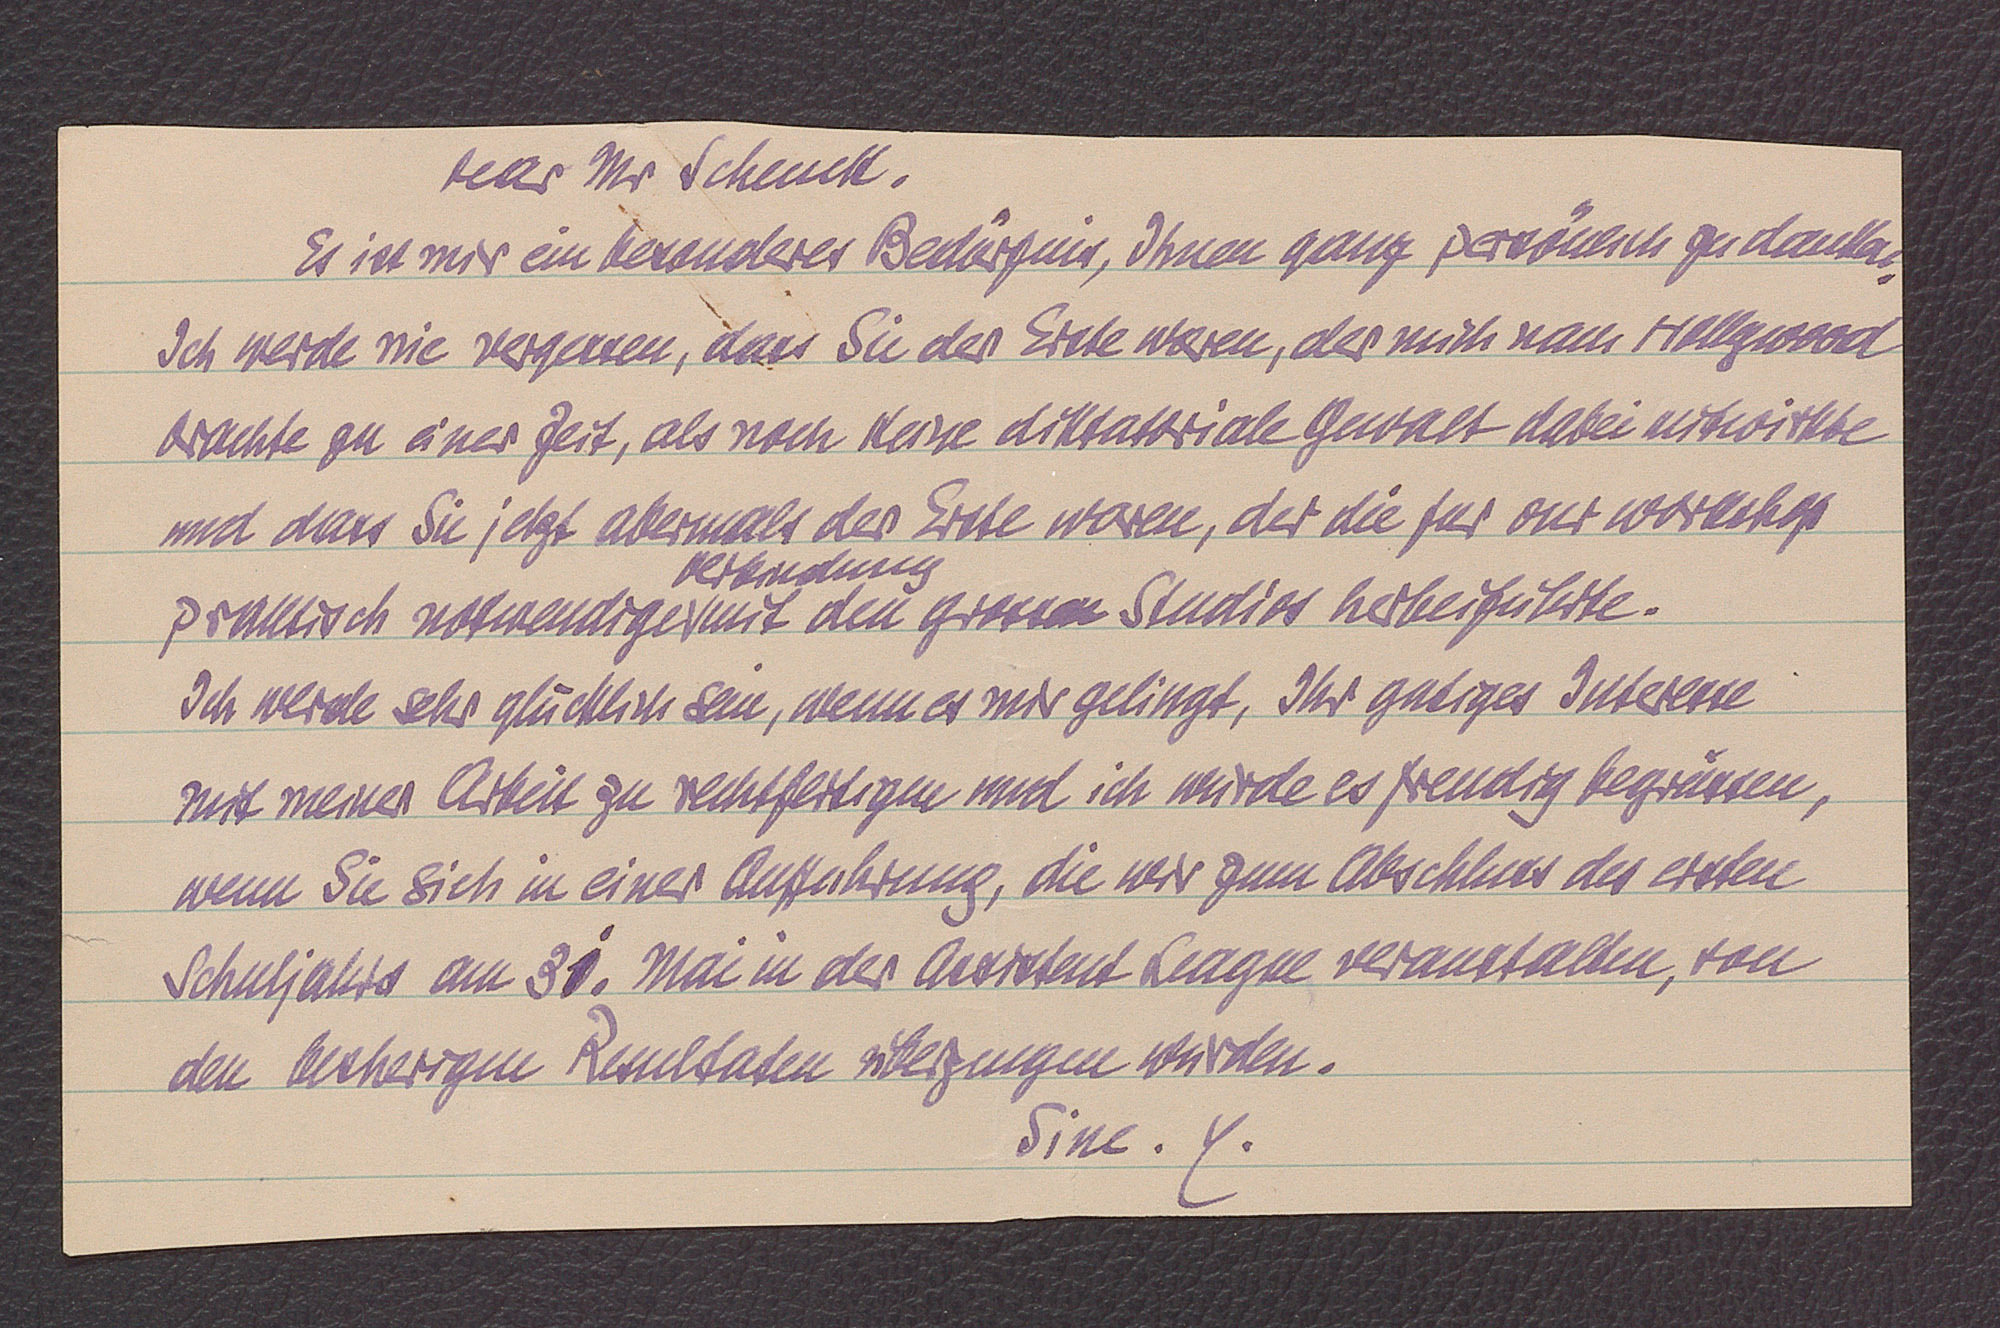 Dear Mr Schenck.
Es ist mir ein besonderes Bedürfnis, Ihnen ganz persönlich zu danken.
Ich werde nie vergessen, dass Sie der Erste waren, der mich nach Hollywood
brachte zu einer Zeit, als noch keine diktatoriale Gewalt dabei mitwirkte
und dass Sie jetzt abermals der Erste waren, der die für our workshop
Verbindung
praktisch notwendige mit den grossen Studios herbeiführte.
Ich werde sehr glücklich sein, wenn es mir gelingt, Ihr gutiges Interesse
mit meiner Arbeit zu rechtfertigen und ich wurde es freudig begrüssen,
wenn Sie sich in einer Aufführung, die wir zum Abschluss des ersten
Schuljahrs am 31. Mai in der Assistent League veranstalten, von
den bisherigen Resultaten überzeugen wurden.
Sinc. Y.